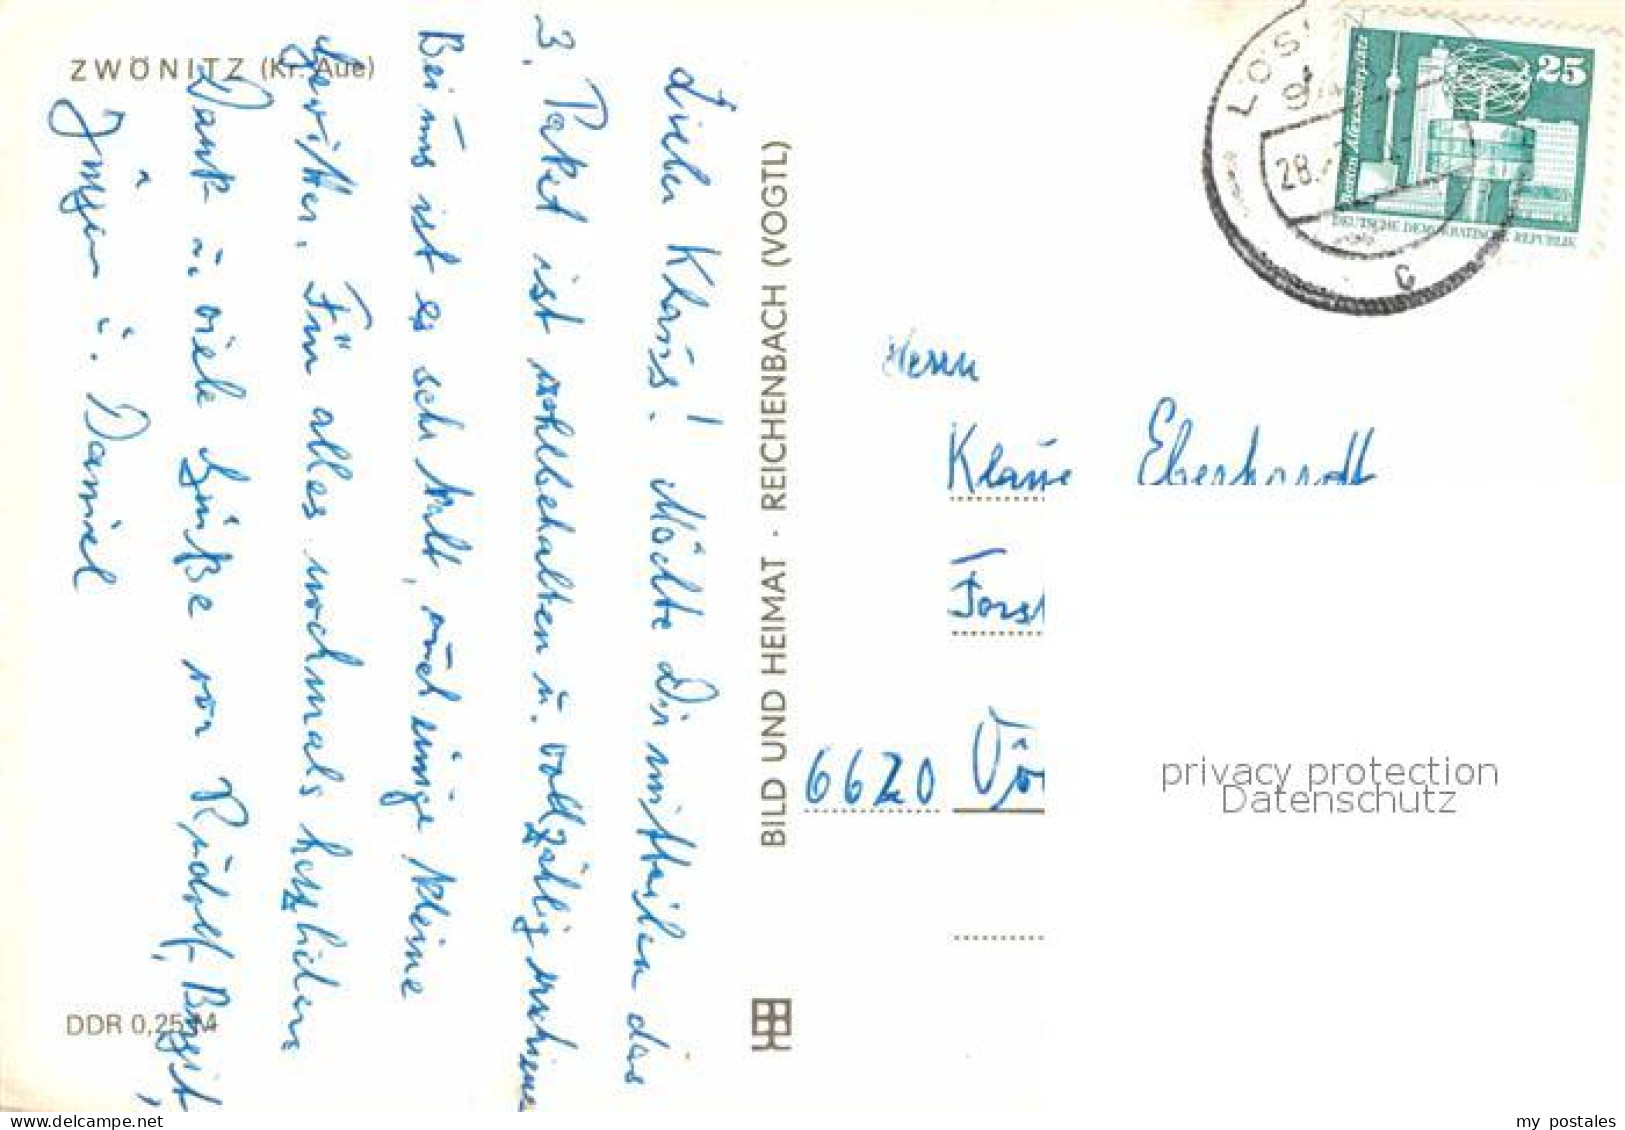 ZWÖNITZ (Kr. Aue)
Lieber Klaus! Möchte Dir mitteilen das
3. Paket ist wohlbehalten u. vollzählig erschienen
Bei uns ist es sehr kalt, auch einige kleine
Gewitter. Für alles nochmals herzlichen
Dank u. viele Grüße von Rudolf, Birgit,
Jürgen u. Daniel
DDR 0,25 M
BILD UND HEIMAT · REICHENBACH (VOGTL)
28.
25
Berlin, Alexanderplatz
DEUTSCHE DEMOKRATISCHE REPUBLIK
c
Herrn
Klaus Eberhardt
Forst
6620 Vö
privacy protection
Datenschutz
www.delcampe.net
my_postales